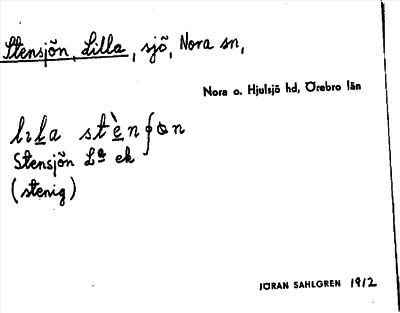 Stensjön, Lilla, sjö, Nora sn,
Nora o. Hjulsjö hd, Örebro län
lıla stènʃɷn
Stensjön Lª ek
(stenig)
JÖRAN SAHLGREN 1912